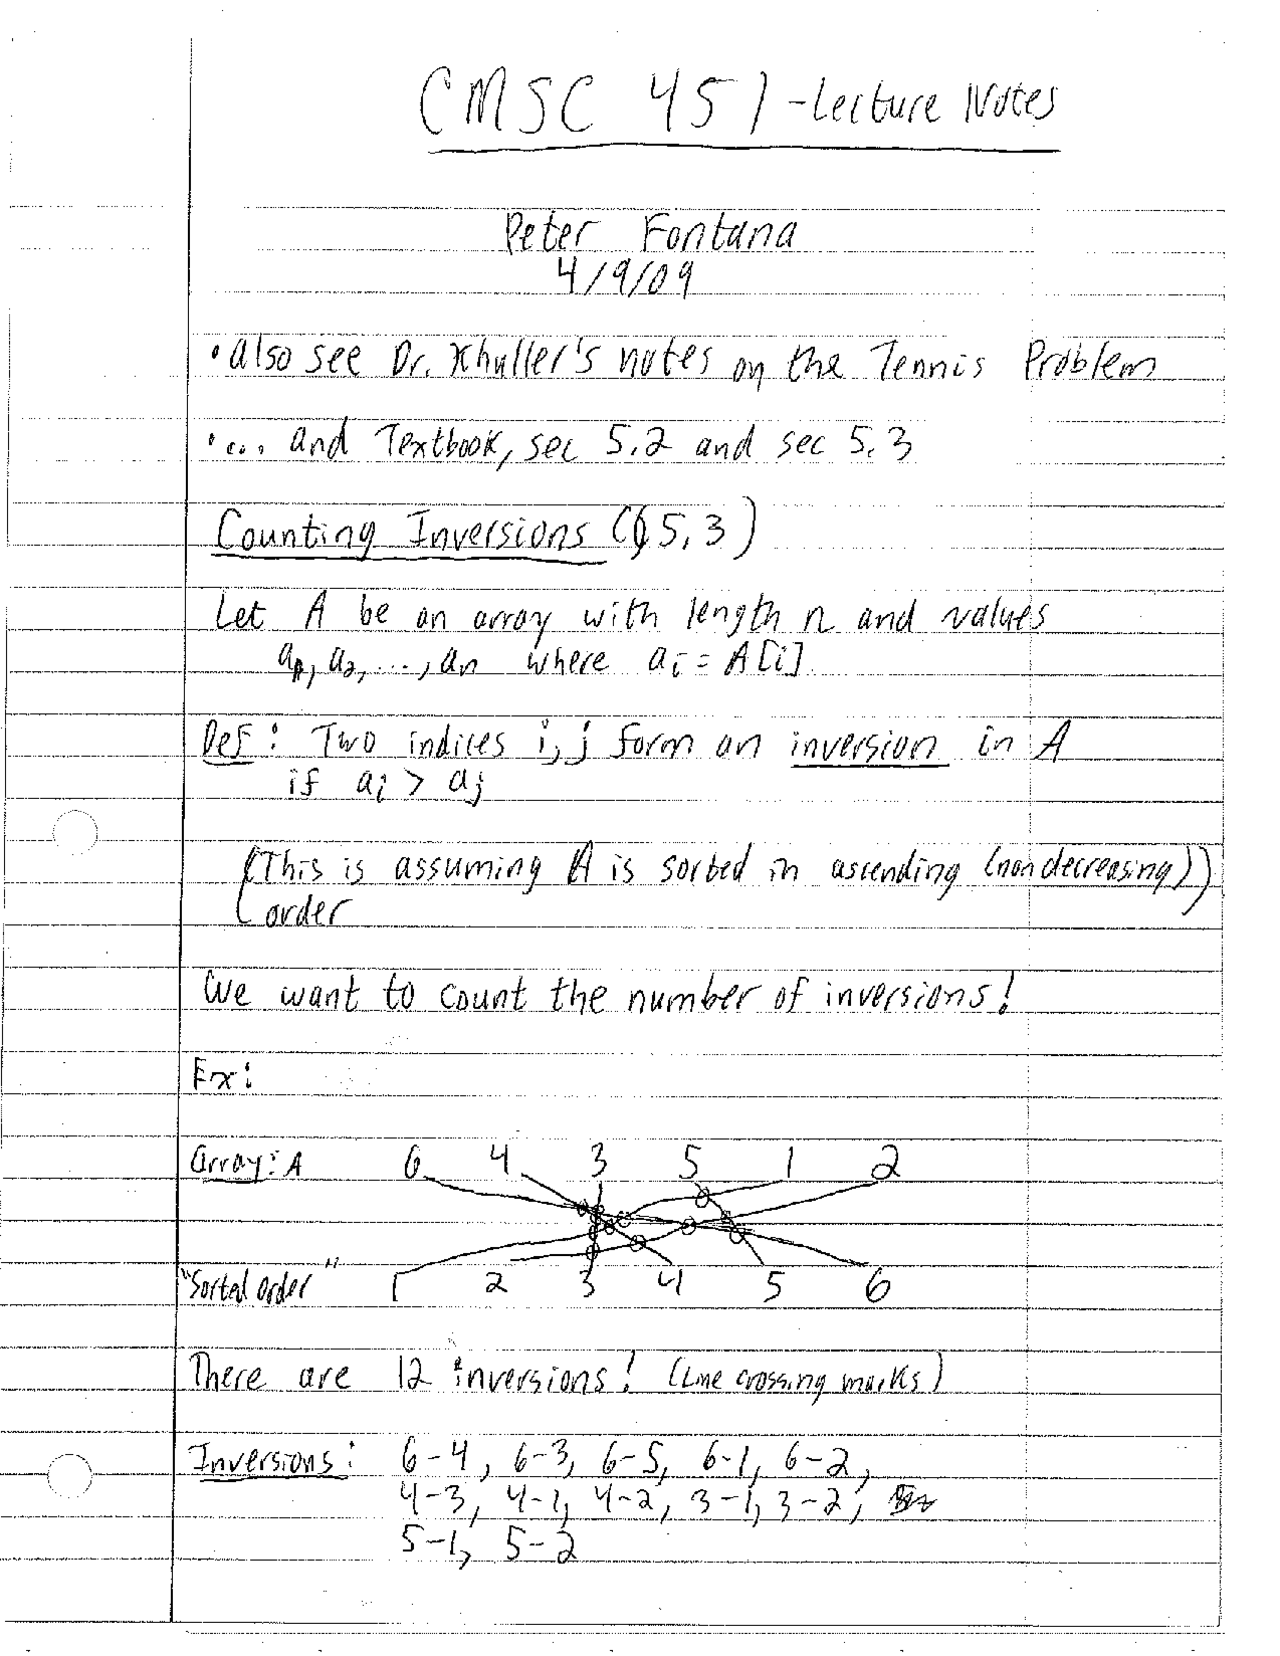 CMSC 451 - Lecture Notes
Peter Fontana
4/9/09
• also see Dr. Khuller's notes on the Tennis Problem
• ... and Textbook, sec 5.2 and sec 5.3
Counting Inversions (5.3)
Let A be an array with length n and values
a1, a2, ..., an where ai = A[i].
Def: Two indices i, j form an inversion in A
if ai > aj
(This is assuming A is sorted in ascending (nondecreasing))
order
We want to count the number of inversions!
Ex:
Array: A 6 4 3 5 1 2
"Sorted order" 1 2 3 4 5 6
There are 12 inversions! (Line crossing marks)
Inversions: 6-4, 6-3, 6-5, 6-1, 6-2,
4-3, 4-1, 4-2, 3-1, 3-2,
5-1, 5-2